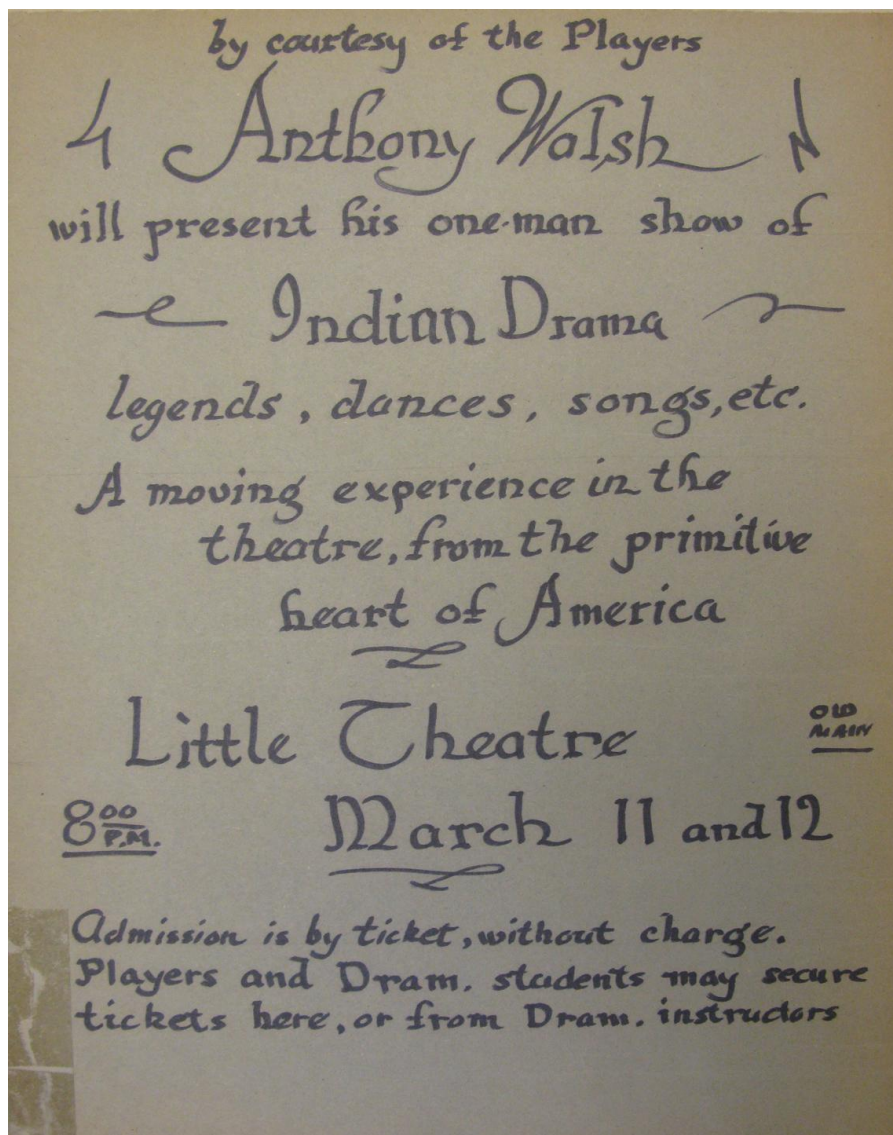 by courtesy of the Players
Anthony Walsh
will present his one-man show of
Indian Drama
legends, dances, songs, etc.
A moving experience in the
theatre, from the primitive
heart of America
Little Theatre
OLD
MAIN
8 00 P.M.
March 11 and 12
Admission is by ticket, without charge.
Players and Dram. students may secure
tickets here, or from Dram. instructors